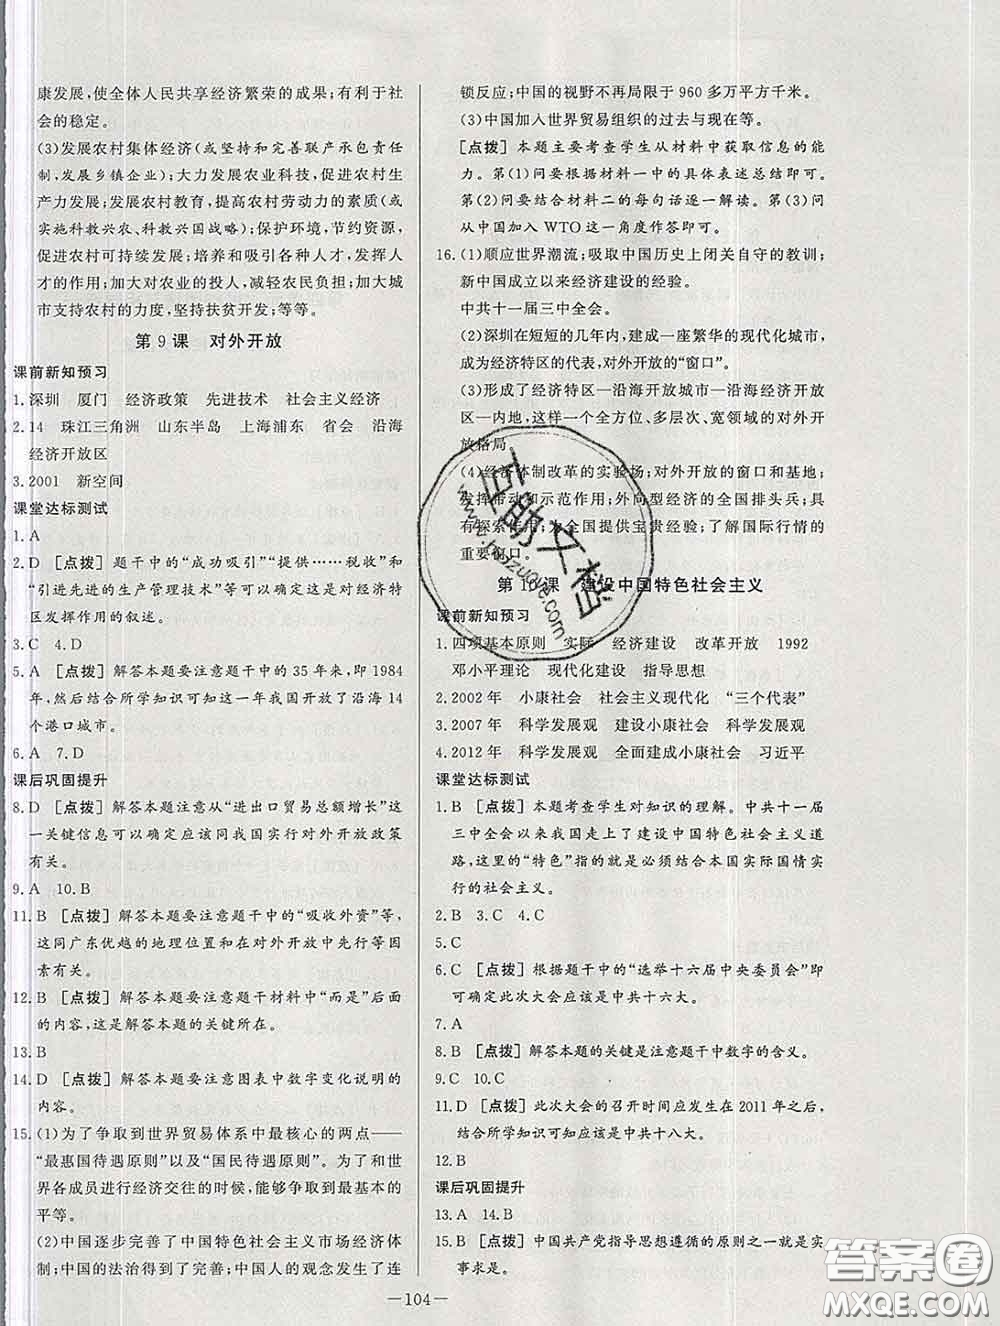 康发展,使全体人民共享经济繁荣的成果;有利于社
会的稳定。
(3)发展农村集体经济(或坚持和完善联产承包制,
发展乡镇企业);大力发展农业科技,促进农村生
产力发展;发展农村教育,提高农村劳动力的素质(或
实施科教兴农、科教兴国战略);保护环境,节约资源,
促进农村可持续发展;培养和吸引农村人才,发挥人
才的作用;加大对农业的投人,减轻农民负担;加大城
市支持农村的力度,坚持扶贫开发;等等。
第9课 对外开放
课前新知预习
1.深圳 厦门 经济政策 先进技术 社会主义经济
2.14 珠江三角洲 山东半岛 上海浦东 省会 沿海
经济开放区
3.2001 新空间
课堂达标测试
1.A
2.D [点拨]题干中的“成功吸引”“提供……税收”和
“引进先进的生产管理技术”等都体现了对经济特
区发挥作用的叙述。
3.C 4.D
5.A [点拨]解答本题要注意题干中的35年来,即1984
年,然后结合所学知识可知这一年我国开放了沿海14
个港口城市。
6.A 7.D
课后巩固提升
8.D [点拨]解答本题注意从“进出口贸易总额增长”这
一关键信息可以确定应该同我国实行对外开放政策
有关。
9.A 10.B
11.B [点拨]解答本题要注意题干中的“吸收外资”等,
这同广东优越的地理位置和在对外开放中先行等因
素有关。
12.B [点拨]解答本题要注意题干材料中“而是”后面
的内容,这是解答本题的关键所在。
13.B
14.D [点拨]解答本题要注意图表中数字变化说明的
内容。
15.(1)为了争取到世界贸易体系中最核心的两点——
“最惠国待遇原则”以及“国民待遇原则”。为了和世
界各成员进行经济交往的时候,能够争取到最基本的
平等。
(2)中国逐步完善了中国特色社会主义市场经济体
制;中国的法治得到了完善;中国人的观念发生了连
锁反应;中国的视野不再局限于960多万平方千米。
(3)中国加入世界贸易组织的过去与现在等。
[点拨]本题主要考查学生从材料中获取信息的能
力。第(1)问要根据材料一中的具体表述总结即可。
第(2)问要结合材料二的每句话逐一解读。第(3)问
从中国加入WTO这一角度作答即可。
16.(1)顺应世界潮流;吸取中国历史上闭关自守的教训;
新中国成立以来经济建设的经验。
中共十一届三中全会。
(2)深圳在短短的几年内,建成一座繁华的现代化城市,
成为经济特区的代表,对外开放的“窗口”。
(3)形成了经济特区—沿海开放城市—沿海经济开放
区—内地,这样一个全方位、多层次、宽领域的对外开
放格局。
(4)经济体制改革的实验场;对外开放的窗口和基地;
发挥带动和示范作用;外向型经济的全国排头兵;具
有探索作用;为全国提供宝贵经验;了解国际行情的
重要窗口。
第10课 建设中国特色社会主义
课前新知预习
1.四项基本原则 实际 经济建设 改革开放 1992
邓小平理论 现代化建设 指导思想
2.2002年 小康社会 社会主义现代化 “三个代表”
3.2007年 科学发展观 建设小康社会 科学发展观
4.2012年 科学发展观 全面建成小康社会 习近平
课堂达标测试
1.B [点拨]本题考查学生对知识的理解。中共十一届
三中全会以来我国走上了建设中国特色社会主义道
路,这里的“特色”指的就是必须结合本国实际国情实
行的社会主义。
2.B 3.C 4.C
5.C
6.C [点拨]根据题干中的“选举十六届中央委员会”即
可确定此次大会应该是中共十六大。
7.A
8.B [点拨]解答本题的关键是注意题干中数字的含义。
9.C 10.C
11.D [点拨]此次大会的召开时间应发生在2011年之后,
结合所学知识可知应该是中共十八大。
12.B
课后巩固提升
13.A 14.B
15.B [点拨]中国共产党指导思想遵循的原则之一就是实
事求是。
—104—
互助文档
www.hzuove.com
答案圈
MXQE.COM